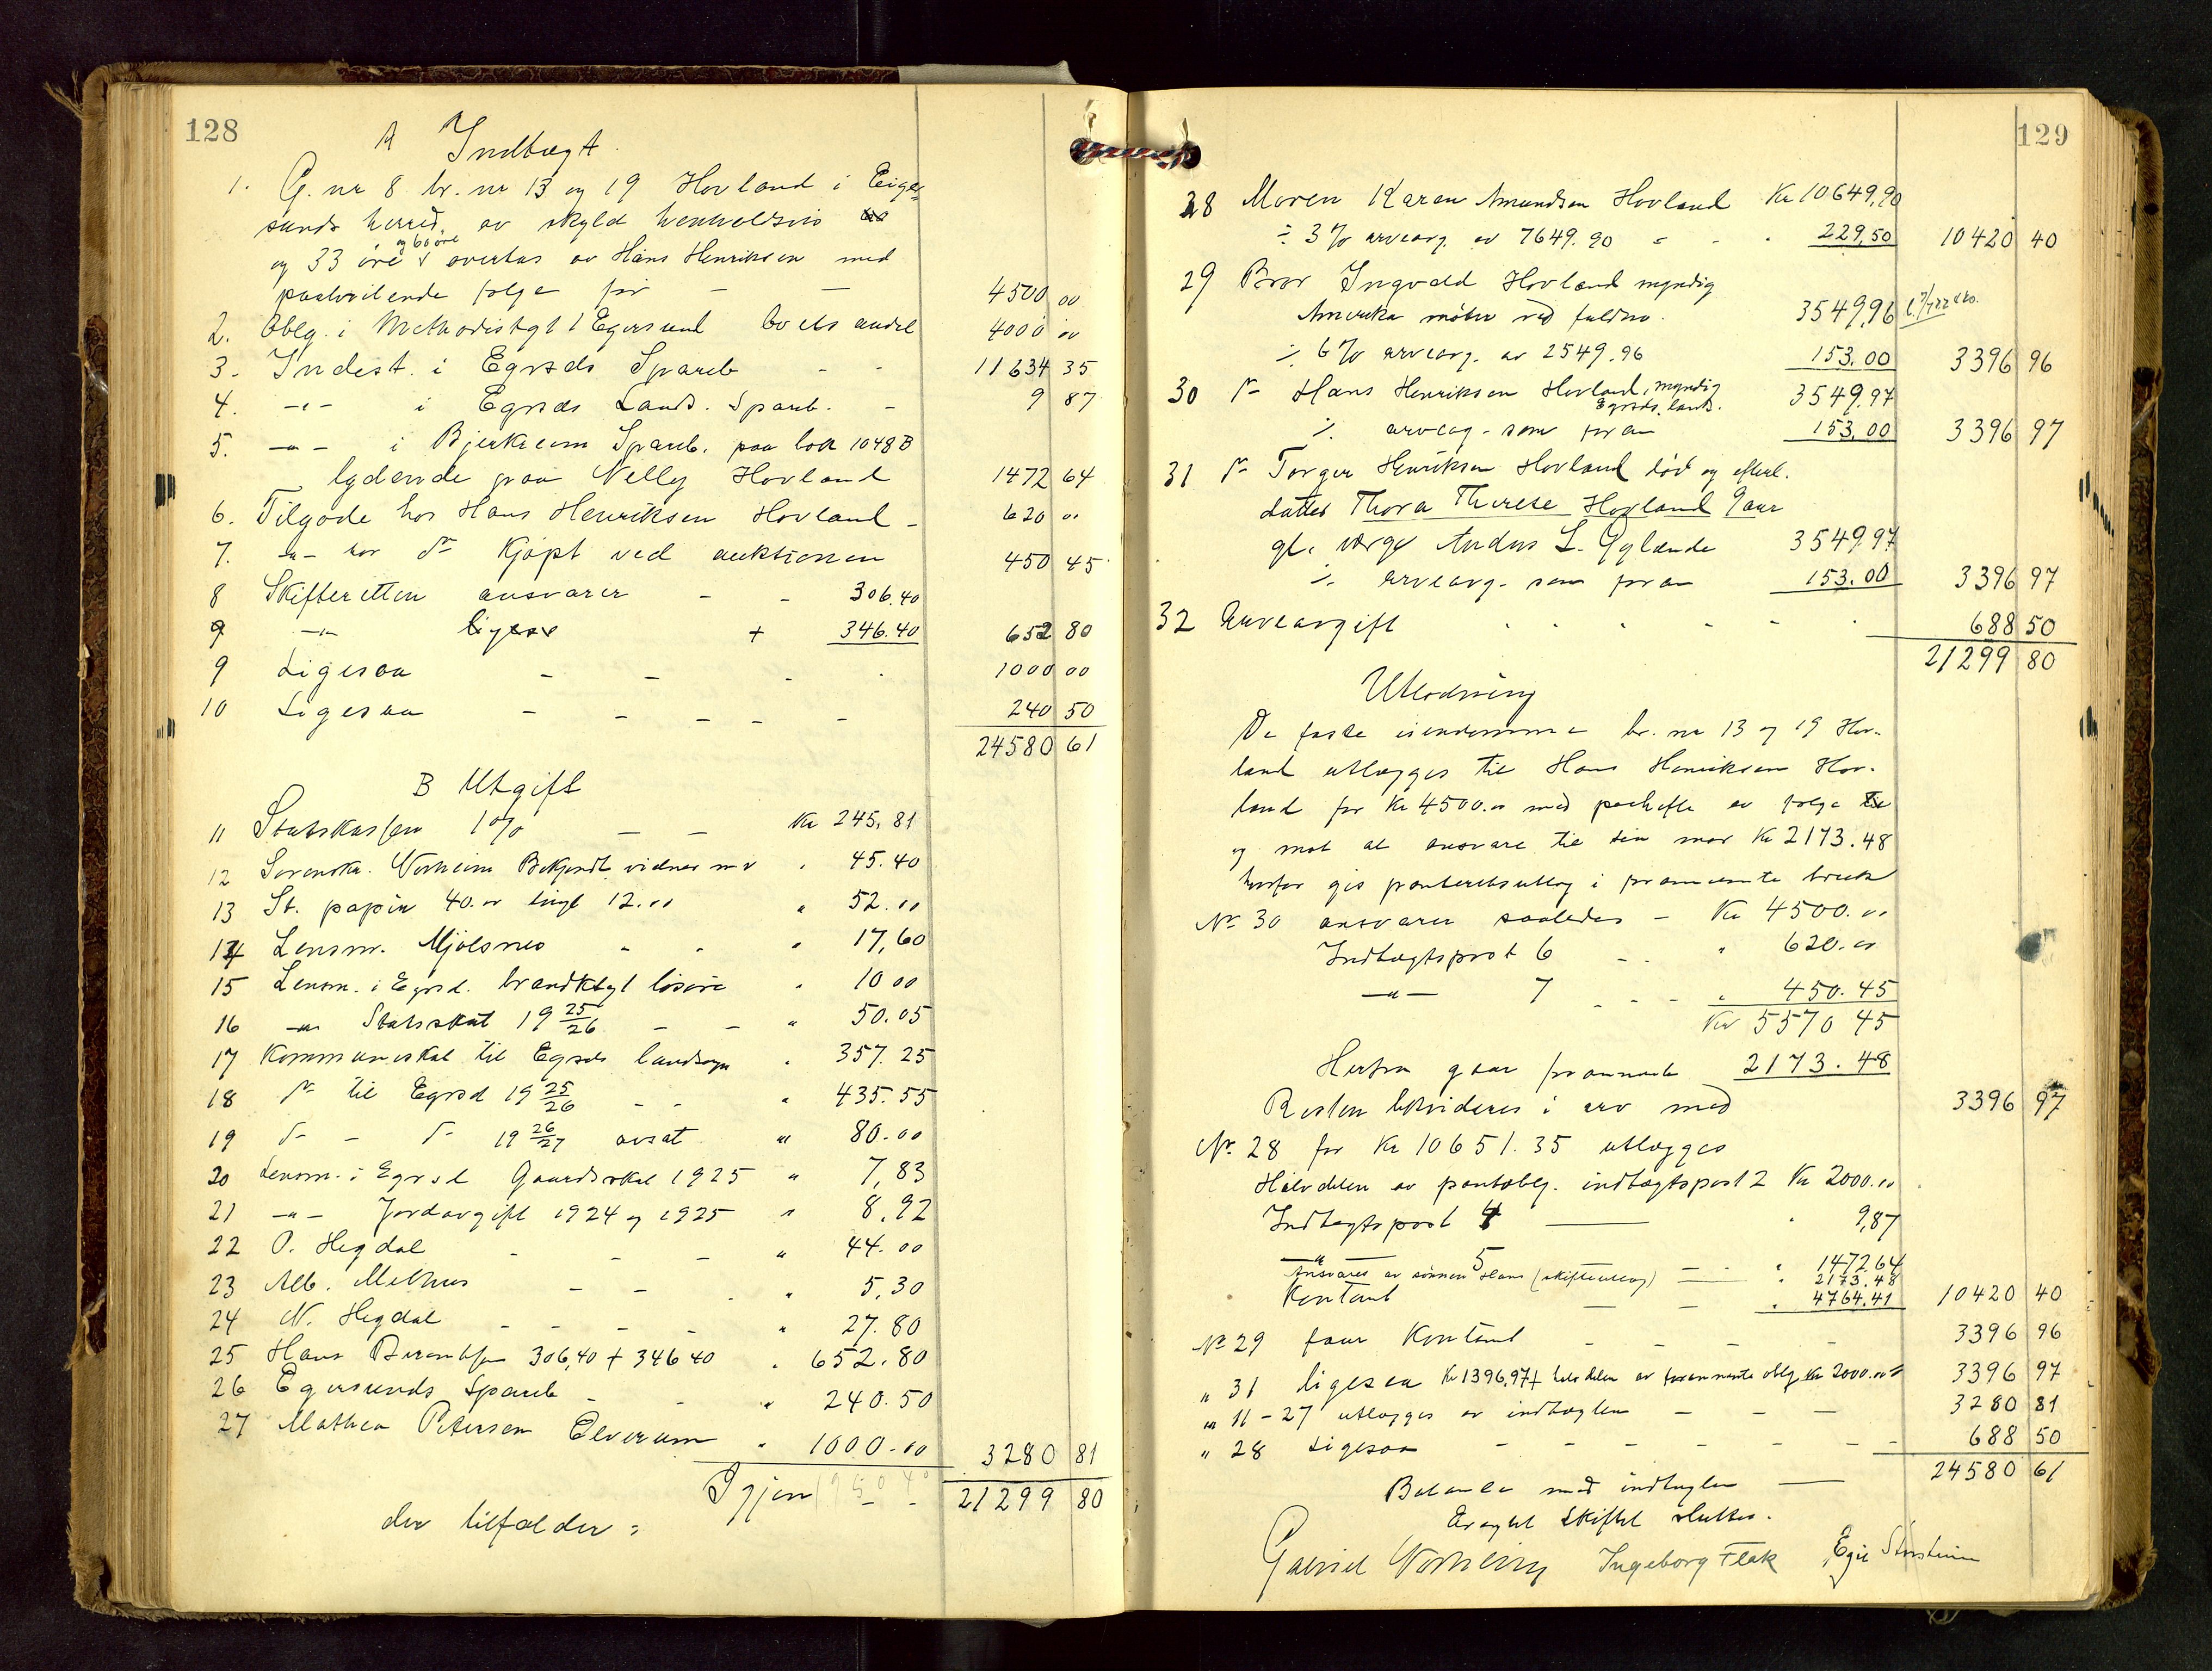 128
A Indtægt.
1. G. nr 8 br. nr 13 og 19 Hovland i Eiger-
sunds herred, av skyld henholdsvis
og 60 øre
og 33 øre overtas av Hans Henriksen med
paahvilende følge for — — 4500 00
2. Oblg. i Methodistkgl i Egersund boets andel 4000 00
3. Indest. i Egrsds Spareb - - 11634 35
4. -"- i Egrsds Lands. Spareb. - 9 87
5. -"- i Bjerkreim Spareb. paa bok 1048 B
lydende paa Nelly Hovland 1472 64
6. Tilgode hos Hans Henriksen Hovland - 620 "
7. -"- hos do Kjøpt ved auktionen 450 45
8 Skifteretten ansvarer - - 306.40
9 -"- ligesaa + 346.40 652 80
9 Ligesaa - - - . 1000 00
10 Ligesaa - - - - - 240 50
24580 61
B Utgift
11 Statskassen 1% — — Kr 245.81
12 Sorenskr. Norheim Bekjendt. vidner m v " 45.40
13 St. papir 40.00 tingl 12.00 " 52.00
14 Lensm. Mjølsnes - - " 17,60
15 Lensm. i Egrsd. brandktgl løsøre " 10 00
16 -"- Statsskat 19 25/26 - - " 50.05
17 Kommuneskat til Egrsds landsogn " 357.25
18 do til Egrsd 19 25/26 - - " 435.55
19 do - do 19 26/27 avsat " 80.00
20 Lensm. i Egrsd Gaardsskat 1925 " 7,83
21 -"- Jordavgift 1924 og 1925 " 8.92
22 O. Hegdal - - - " 44.00
23 Alb. Melhus - - . " 5,30
24 N. Hegdal - - - - " 27.80
25 Hans Berentsen 306,40 + 346 40 " 652.80
26 Egersunds Spareb - - " 240.50
27 Mathea Petersen Elverum " 1000.00 3280 81
Igjen - - 21299 80
der tilfalder:
129
28 Moren Karen Amundsen Hovland Kr 10649,90
÷ 3% arveavg. av 7649.90 - - " 229,50 10420 40
29 Bror Ingvald Hovland myndig
Amerika møter ved fuldm. 3549,96
÷ 6% arveavg. av 2549.96 153.00 3396 96
30 do Hans Henriksen Hovland, myndig
Egrsds. lands. 3549,97
÷ arveavg. som foran 153,00 3396 97
31 do Torger Henriksen Hovland død og efterl.
datter Thora Therese Hovland 9 aar
gl. værge Andres L. Gylande 3549,97
÷ arveavg. som foran 153.00 3396 97
32 Arveavgift . . . - - . 688 50
21299 80
Utlodning
De faste eiendomme br. nr 13 og 19 Hov-
land utlægges til Hans Henriksen Hov-
land for Kr 4500.00 med paahefte av følge
og mot at ansvare til sin mor Kr 2173.48
hvorfor gis panteretsutlæg i frannævnte bruk
Nr 30 ansvarer saaledes - Kr 4500.00
Indtægtspost 6 - - " 620.00
-"- 7 - - - " 450.45
Kr 5570 45
Herfra gaar frannævnte 2173.48
Resten likvideres i arv med 3396 97
Nr. 28 for Kr 10651.35 utlægges
Halvdelen av pantoblg. indtægtspost 2 Kr 2000.00
Indtægtspost 4 — " 9,87
-"- 5 - - " 1472 64
Ansvares av sønnen Hans (skifteutlæg) — " 2173.48
Kontant — - " 4764.41 10420 40
Nr 29 faar Kontant - - - - - 3396 96
" 31 ligesaa Kr 1396,97 + halvdelen av forannævnte oblg. Kr 2000.00 = 3396 97
" 11 - 27 utlægges av indtægten - - - 3280 81
" 28 Ligesaa - - - - - - - 688 50
Balance med indtægten — 24580 61
Eragtet Skiftet sluttes.
Gabriel Norheim Ingeborg Flak Egil Storsheim